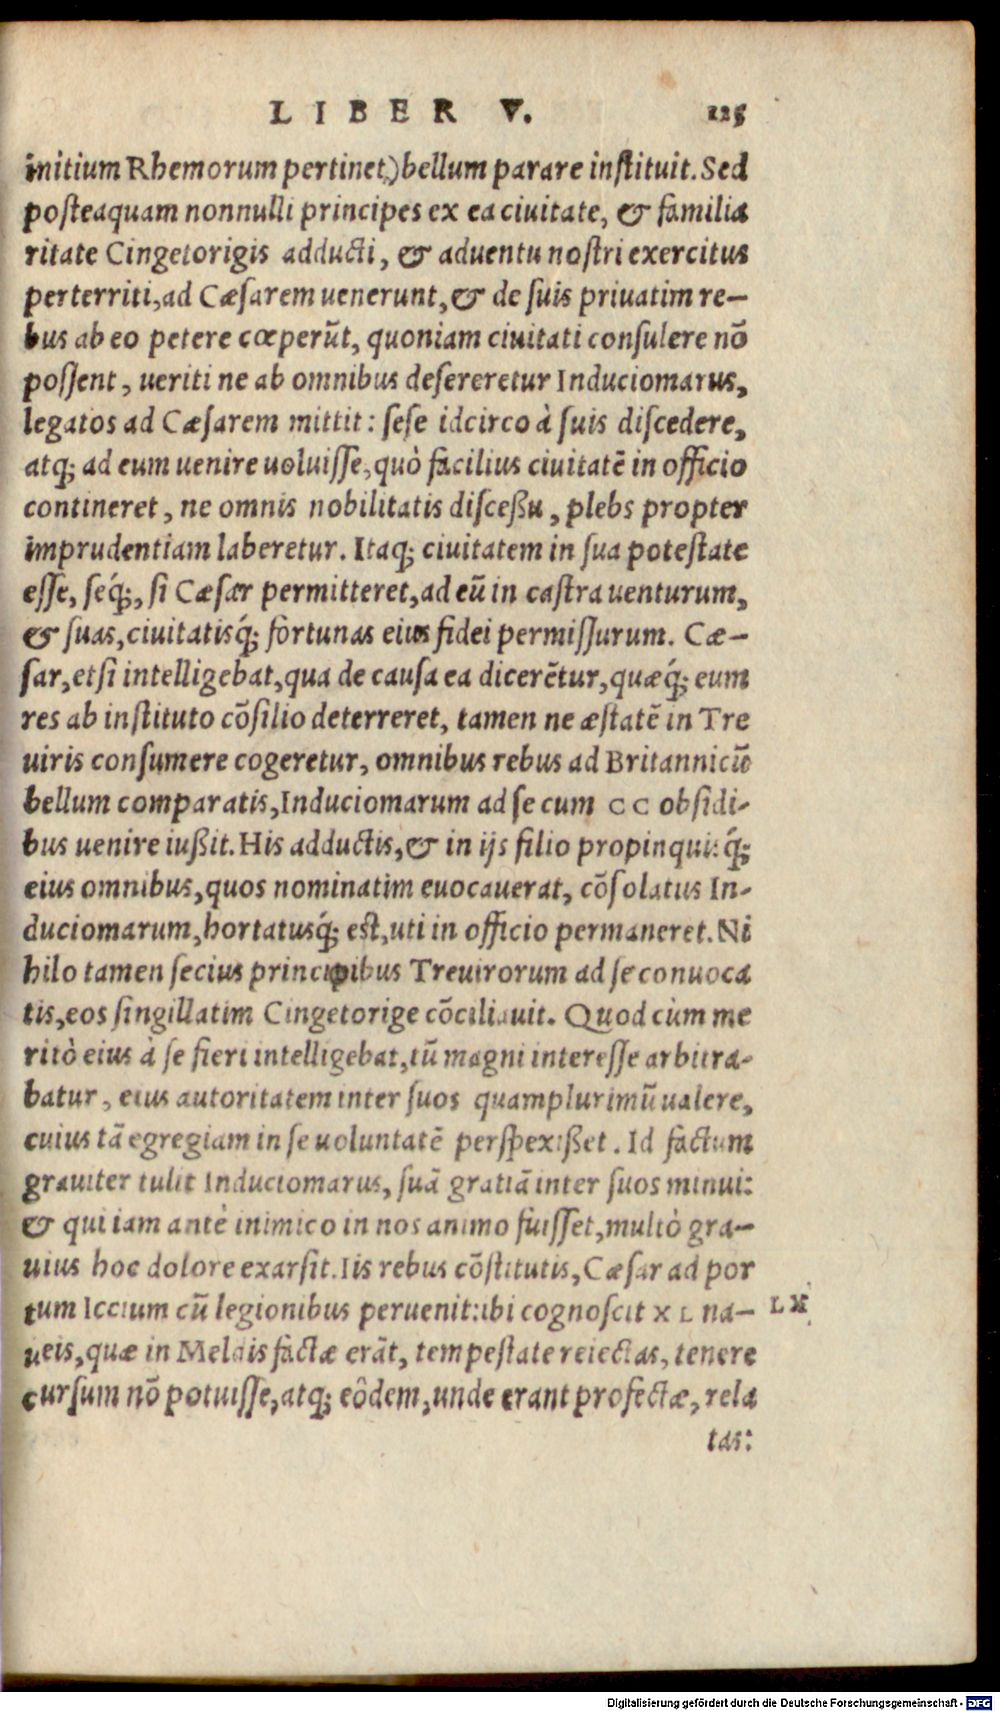 LIBER V. 125
initium Rhemorum pertinet,) bellum parare instituit. Sed
posteaquam nonnulli principes ex ea ciuitate, & familia
ritate Cingetorigis adducti, & aduentu nostri exercitus
perterriti, ad Cæsarem uenerunt, & de suis priuatim re-
bus ab eo petere cœperũt, quoniam ciuitati consulere nõ
possent, ueriti ne ab omnibus desereretur Induciomarus,
legatos ad Cæsarem mittit: sese idcirco à suis discedere,
atq; ad eum uenire uoluisse, quò facilius ciuitatẽ in officio
contineret, ne omnis nobilitatis disceßu, plebs propter
imprudentiam laberetur. Itaq; ciuitatem in sua potestate
esse, seq́;, si Cæsar permitteret, ad eũ in castra uenturum,
& suas, ciuitatisq́; fortunas eius fidei permissurum. Cæ-
sar, etsi intelligebat, qua de causa ea dicerẽtur, quæq́; eum
res ab instituto cõsilio deterreret, tamen ne æstatẽ in Tre
uiris consumere cogeretur, omnibus rebus ad Britannicũ
bellum comparatis, Induciomarum ad se cum CC obsidi-
bus uenire iußit. His adductis, & in ijs filio propinquisq́;
eius omnibus, quos nominatim euocauerat, cõsolatus In-
duciomarum, hortatusq́; est, uti in officio permaneret. Ni
hilo tamen secius principibus Treuirorum ad se conuoca
tis, eos singillatim Cingetorige cõciliauit. Quod cùm me
ritò eius à se fieri intelligebat, tũ magni interesse arbitra-
batur, eius autoritatem inter suos quamplurimũ ualere,
cuius tã egregiam in se uoluntatẽ perspexißet. Id factum
grauiter tulit Induciomarus, suã gratiã inter suos minui:
& qui iam antè inimico in nos animo fuisset, multò gra-
uius hoc dolore exarsit. Iis rebus cõstitutis, Cæsar ad por
tum Iccium cũ legionibus peruenit: ibi cognoscit XL na- LX
ueis, quæ in Meldis factæ erãt, tempestate reiectas, tenere
cursum nõ potuisse, atq; eôdem, unde erant profectæ, rela
tas:
Digitalisierung gefördert durch die Deutsche Forschungsgemeinschaft - DFG